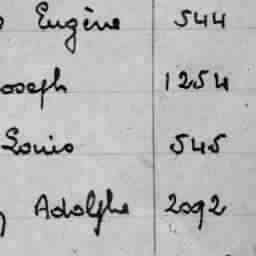 Eugène 544
Joseph 1254
Louis 545
Adolphe 2092